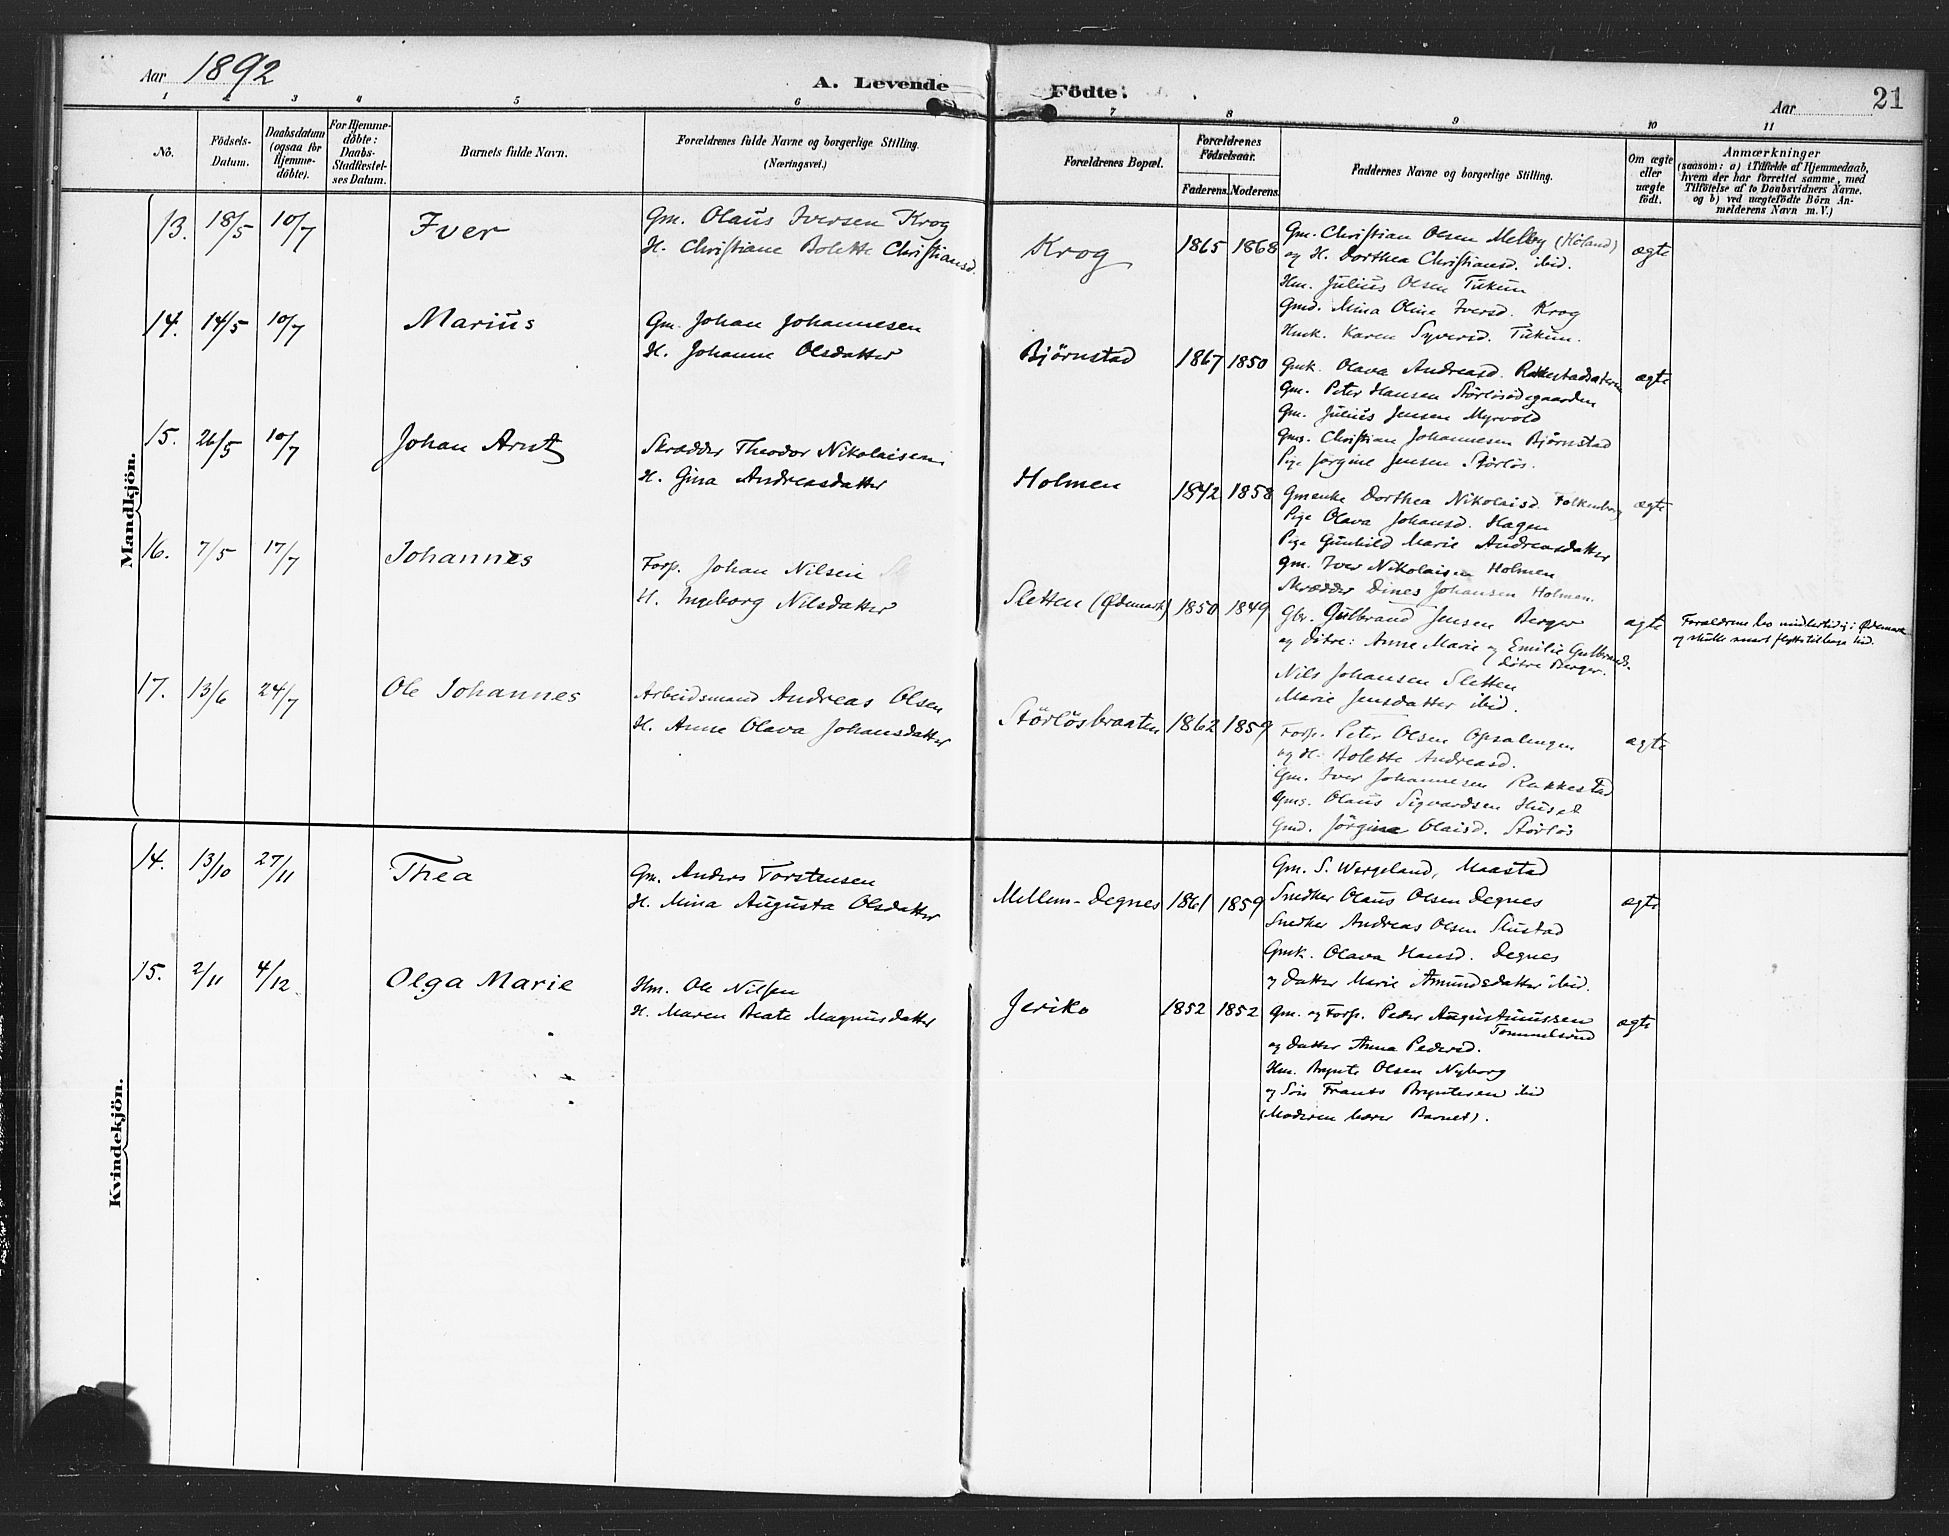 Aar 1892
A. Levende Födte.
Aar 21
1 2 3 4 5 6 7 8 9 10 11
No.
Födsels-Datum.
Daabsdatum (ogsaa for Hjemme-döbte).
For Hjemme-döbte: Daabs-Stadfæstel-ses Datum.
Barnets fulde Navn.
Forældrenes fulde Navne og borgerlige Stilling.
(Næringsvei.)
Forældrenes Bopæl.
Forældrenes Födselsaar.
Faderens. Moderens.
Faddernes Navne og borgerlige Stilling.
Om ægte eller uægte födt.
Anmærkninger
(saasom: a) i Tilfælde af Hjemmedaab,
hvem der har forrettet samme, med
Tilföielse af to Daabsvidners Navne.
og b) ved uægtefödte Börn An-
melderens Navn m. V.)
Mandkjön.
13. 18/5 10/7 Iver
Gm. Olaus Iversen Krog
H. Christiane Bolette Christiansd.
Krog 1865 1868
Gm. Christian Olsen Melby (Höland)
og H. Dorthea Christiansd. ibid.
Hm. Julius Olsen Tukun
Gmd. Mina Oline Iversd. Krog
Hmk. Karen Syversd. Tukun.
ægte
14. 14/5 10/7 Marius
Gm. Johan Johannesen
H. Johanne Olsdatter
Bjørnstad 1867 1850
Gmk. Olava Andreasd.
Gm. Peter Hansen Störlösödegaarden
Gm. Julius Jensen Myrvold
Gms. Christian Johannesen Bjørnstad
Pige Jørgine Jensen Störlös.
ægte
15. 26/5 10/7 Johan Arnt
Skrædder Theodor Nikolaisen
H. Gina Andreasdatter
Holmen 1842 1858
Gmenke Dorthea Nikolaisd. Falkenborg
Pige Olava Johansd. Hagen
Pige Gunhild Marie Andreasdatter
Gm. Iver Nikolaisen Holmen
Skrædder Dines Johansen Holmen.
ægte
16. 7/5 17/7 Johannes
Forp. Johan Nilsen
H. Ingeborg Nilsdatter
Sletten (Ødemark) 1850 1849
Gbr. Gulbrand Jensen Berger
og Døtre: Anne Marie og Emilie Gulbrands-
døtre Berger.
Nils Johansen Sletten
Marie Jensdatter ibid.
ægte
Forældrene bo midlertidig i Ødemark
og skulle snart flytte tilbage hid.
17. 13/6 24/7 Ole Johannes
Arbeidsmand Andreas Olsen
H. Anne Olava Johansdatter
Störlösbraaten 1862 1859
Forp. Peter Olsen Opsalengen
og H. Bolette Andreasd.
Gm. Iver Johannesen Rakkestad
Gms. Olaus Sigvardsen Huset
Gmd. Jørgine Olaisd. Störlös
ægte
Kvindekjön.
14. 13/10 27/11 Thea
Gm. Anders Torstensen
H. Mina Augusta Olsdatter
Mellem-Degnes 1861 1859
Gm. S. Wergeland, Maastad
Snedker Olaus Olsen Degnes
Snedker Andreas Olsen Slustad
Gmk. Olava Hansd. Degnes
og Datter Marie Amundsdatter ibid.
ægte
15. 2/11 4/12 Olga Marie
Hm. Ole Nilsen
H. Maren Beate Magnusdatter
Jeriko 1852 1852
Gm. og Forp. Peder Augustinussen
Tommelsrud
og Datter Anna Pedersd.
Hm. Brynte Olsen Nyborg
og Søn Frants Bryntesen ibid
(Moderen bærer Barnet).
ægte